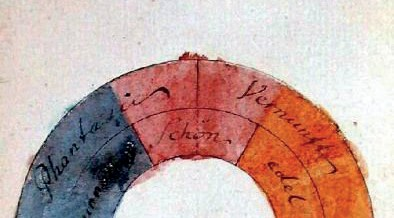 Phantasie
Vernunft
Schön
edel